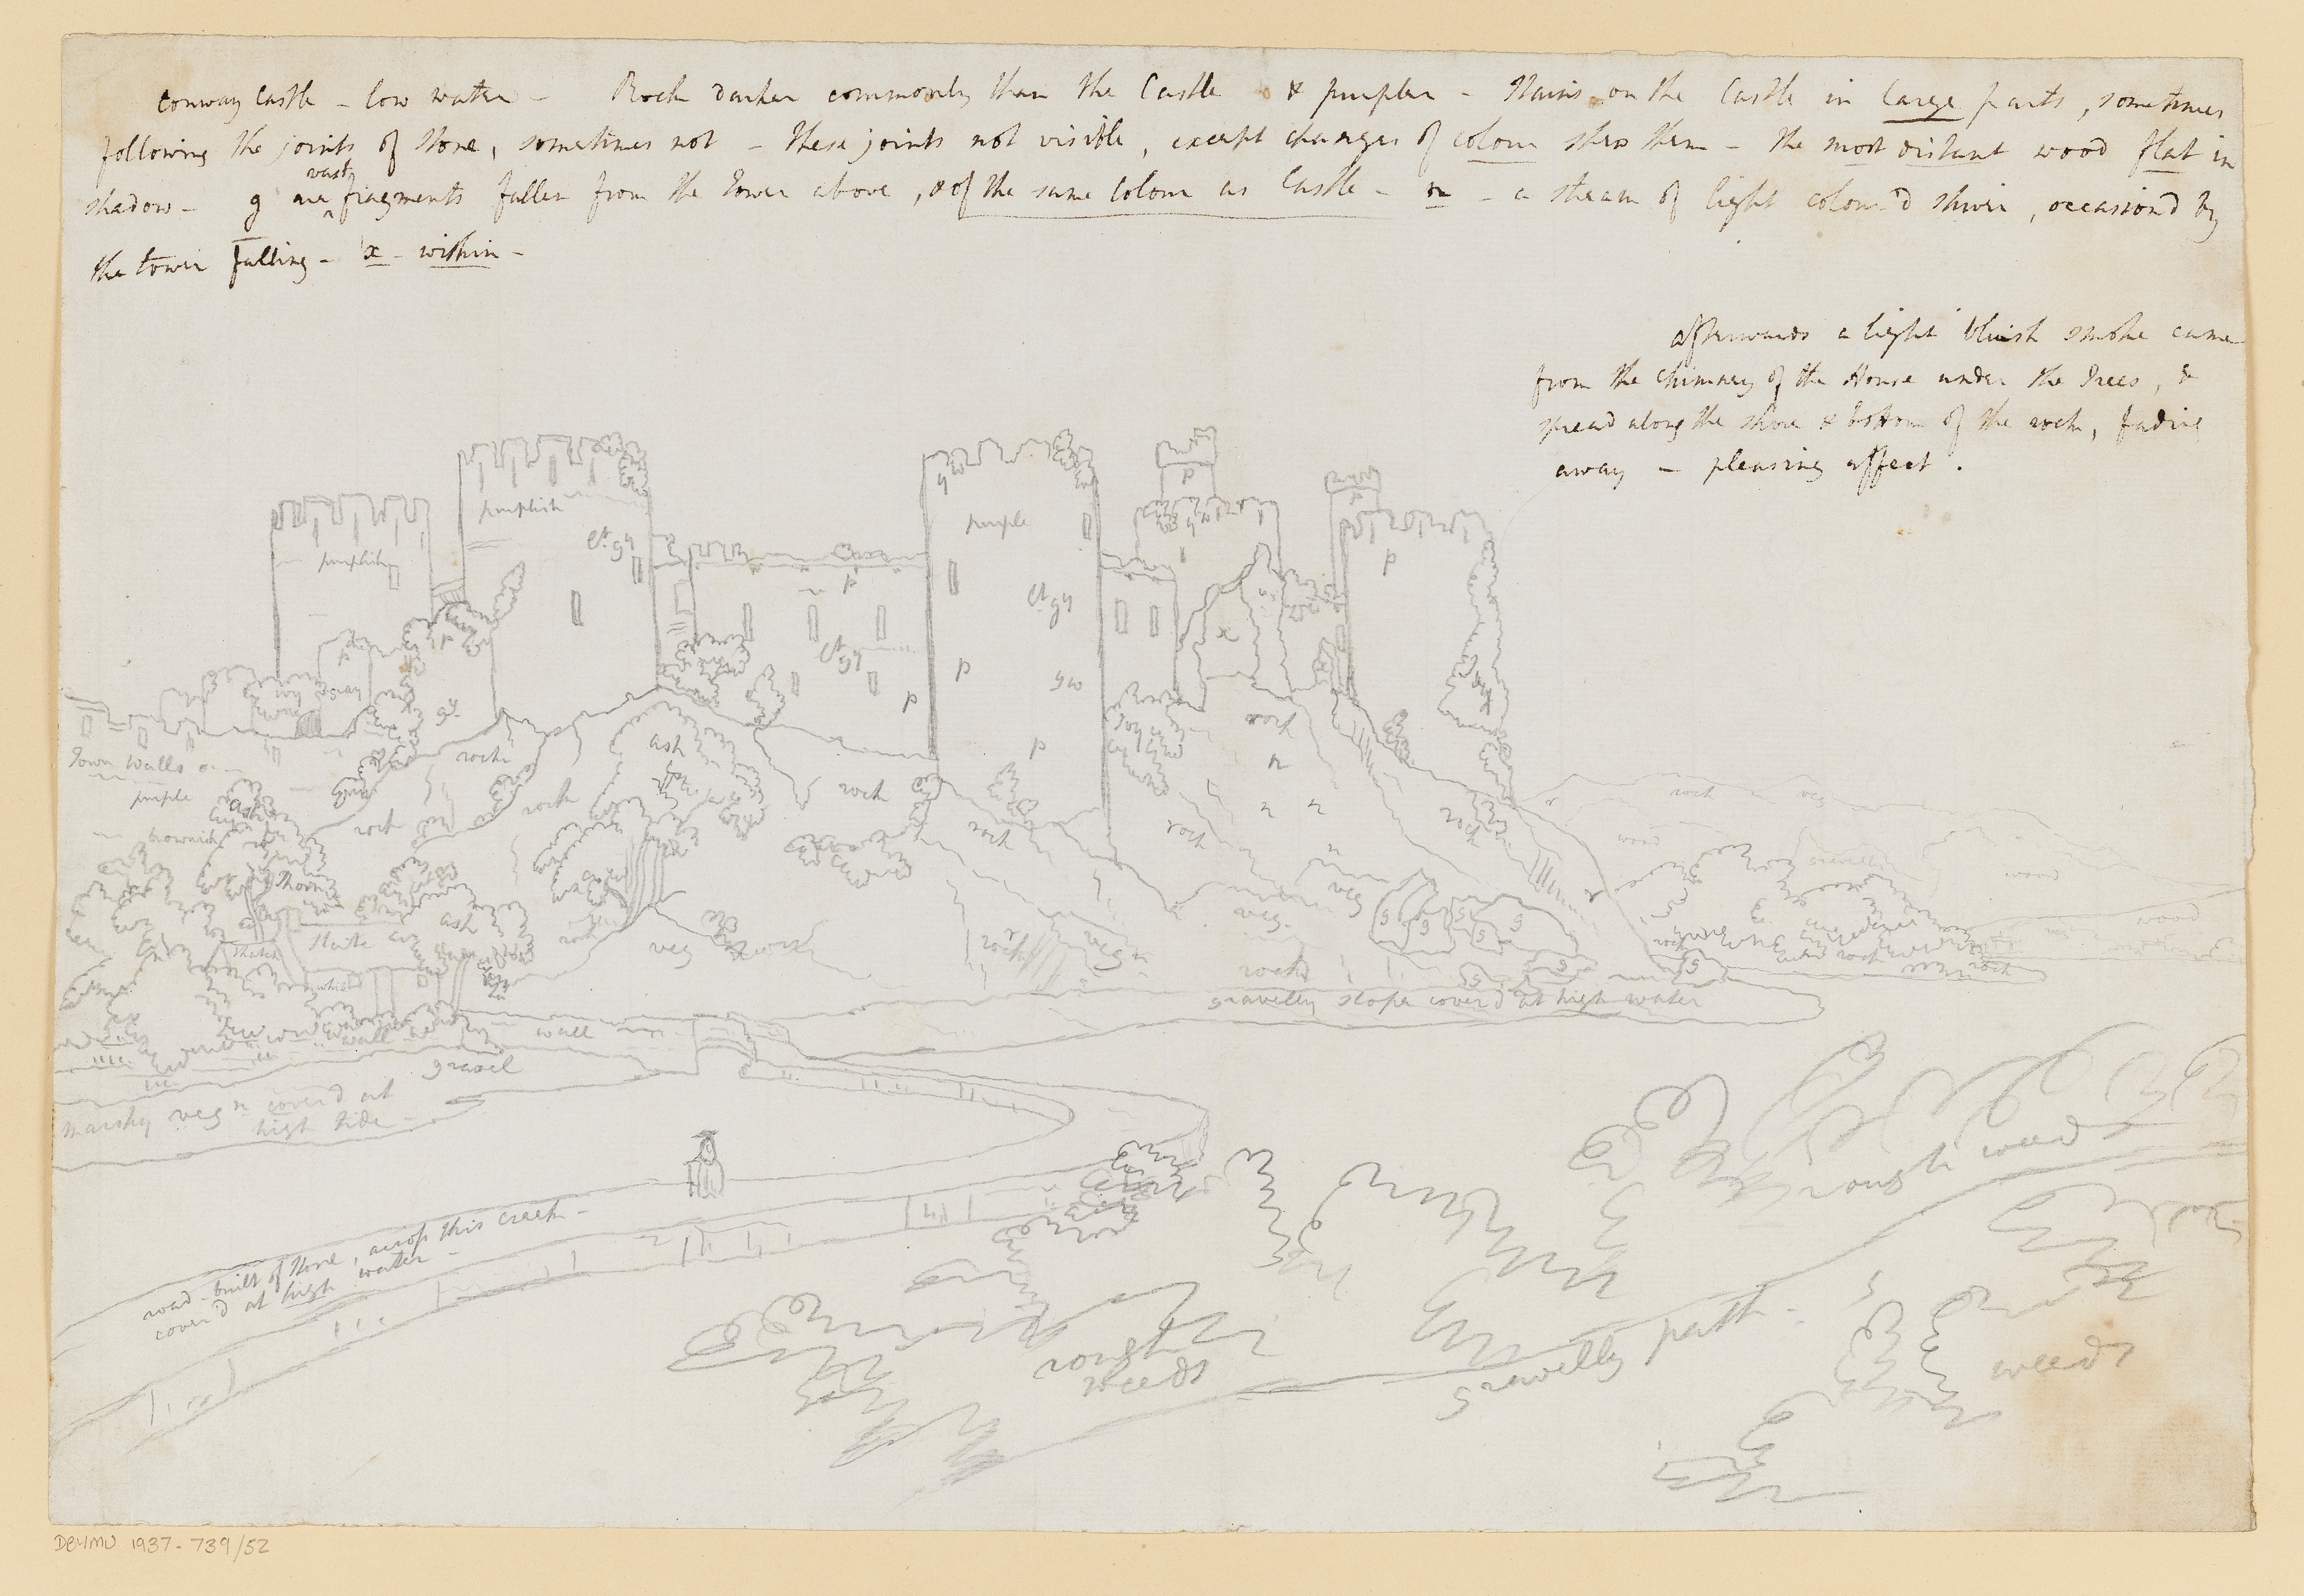 Conway Castle - low water - Rock darker commonly than the Castle & purpler - Stains on the Castle in large parts, sometimes
following the joints of Stone, sometimes not - these joints not visible, except changes of colour shew them - the most distant wood flat in
vast
shadow - g are fragments fallen from the Tower above, & of the same Colour as Castle - n - a stream of light colour'd shiver, occasion'd by
the tower falling - x - within -
afterwards a light bluish smoke came
from the chimney of the House under the Trees, &
spread along the shore & bottom of the rock, fading
away - pleasing effect.
purplish
lt. gy
purplish
purple
gw
p
p
p
p
lt gy
lt gy
x
p
p
gw
p
p
gy.
rock
n
Town walls
purple
brownish
ash
rock
rock
ash
rock
rock
rock
rock
rock
n n
n
rock
veg
wood
wood
wood
Thorn
ash
Thatch
veg
rock
veg
veg.
veg
g g g g g
g g
rock
rock
rock
rock
gravelly slope cover'd at high water
wall
wall
gravel
marshy vegn cover'd at
high tide -
road - built of Stone, across this creek -
cover'd at high water -
rough weeds
rough
weeds
gravelly path -
weeds
DBYMU 1937-739/52